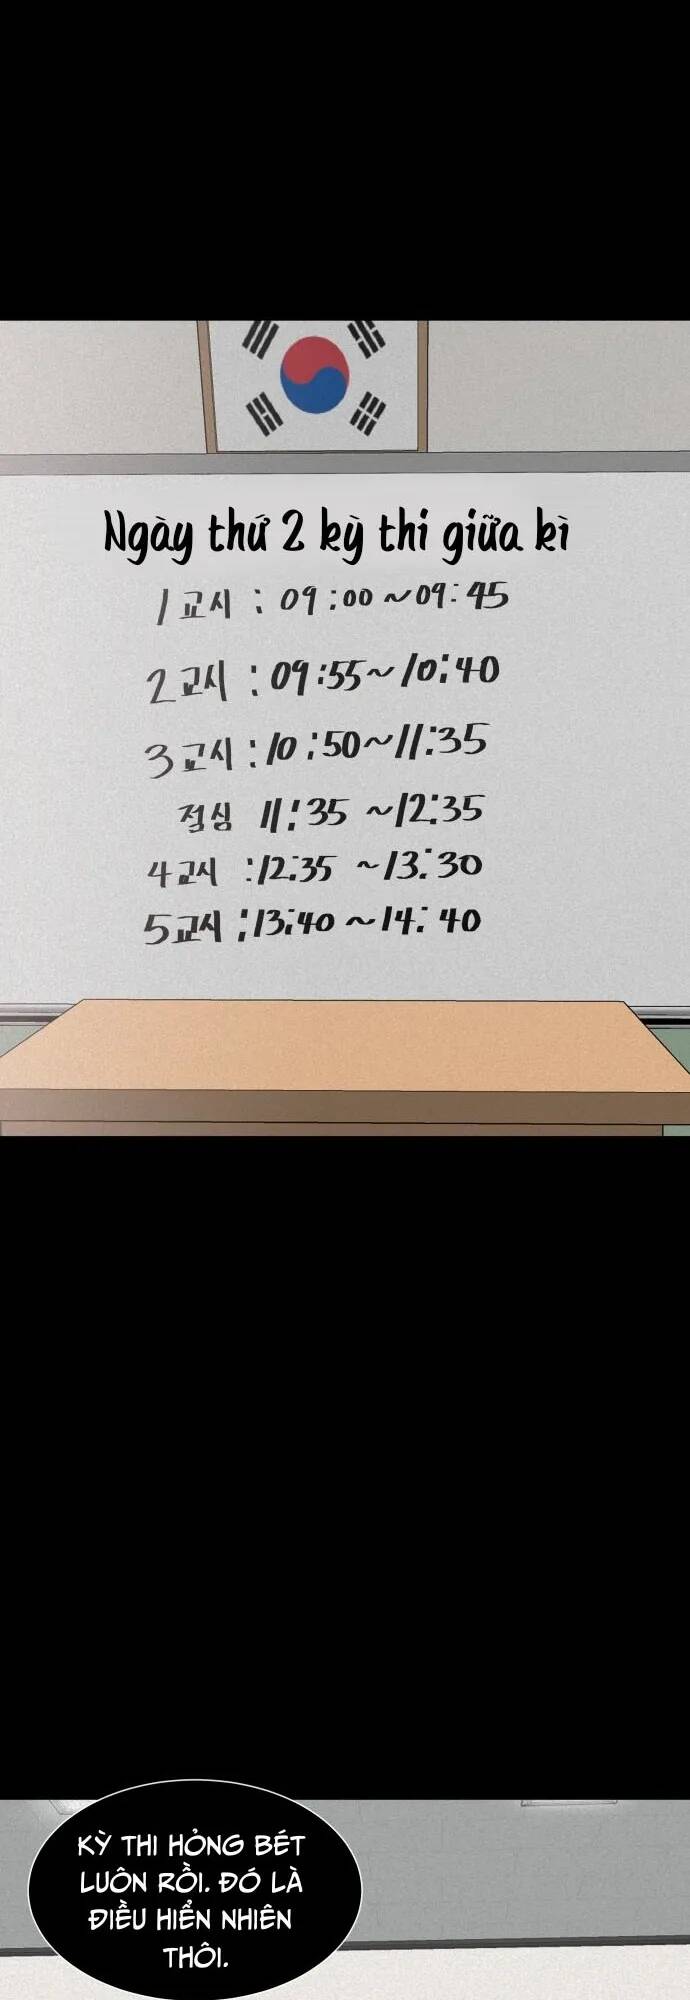 Ngày thứ 2 kỳ thi giữa kì
1교시 : 09:00~09:45
2교시 : 09:55~10:40
3교시 : 10:50~11:35
점심 11:35 ~12:35
4교시 :12:35 ~13:30
5교시 :13:40 ~14:40
KỲ THI HỎNG BÉT
LUÔN RỒI. ĐÓ LÀ
ĐIỀU HIỂN NHIÊN
THÔI.